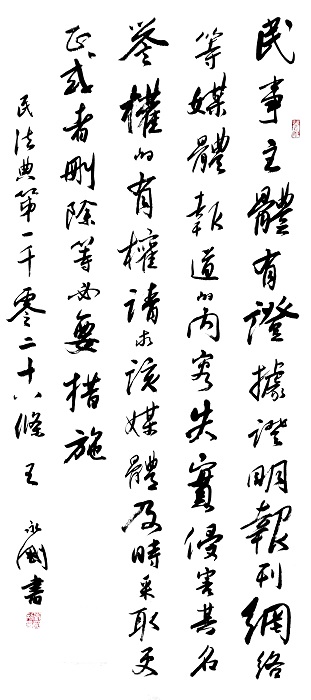 民事主體有證據證明報刊網絡
等媒體報道的内容失實侵害其名
譽權的有權請求該媒體及時采取更
正或者刪除等必要措施
民法典第一千零二十八條王永剛書